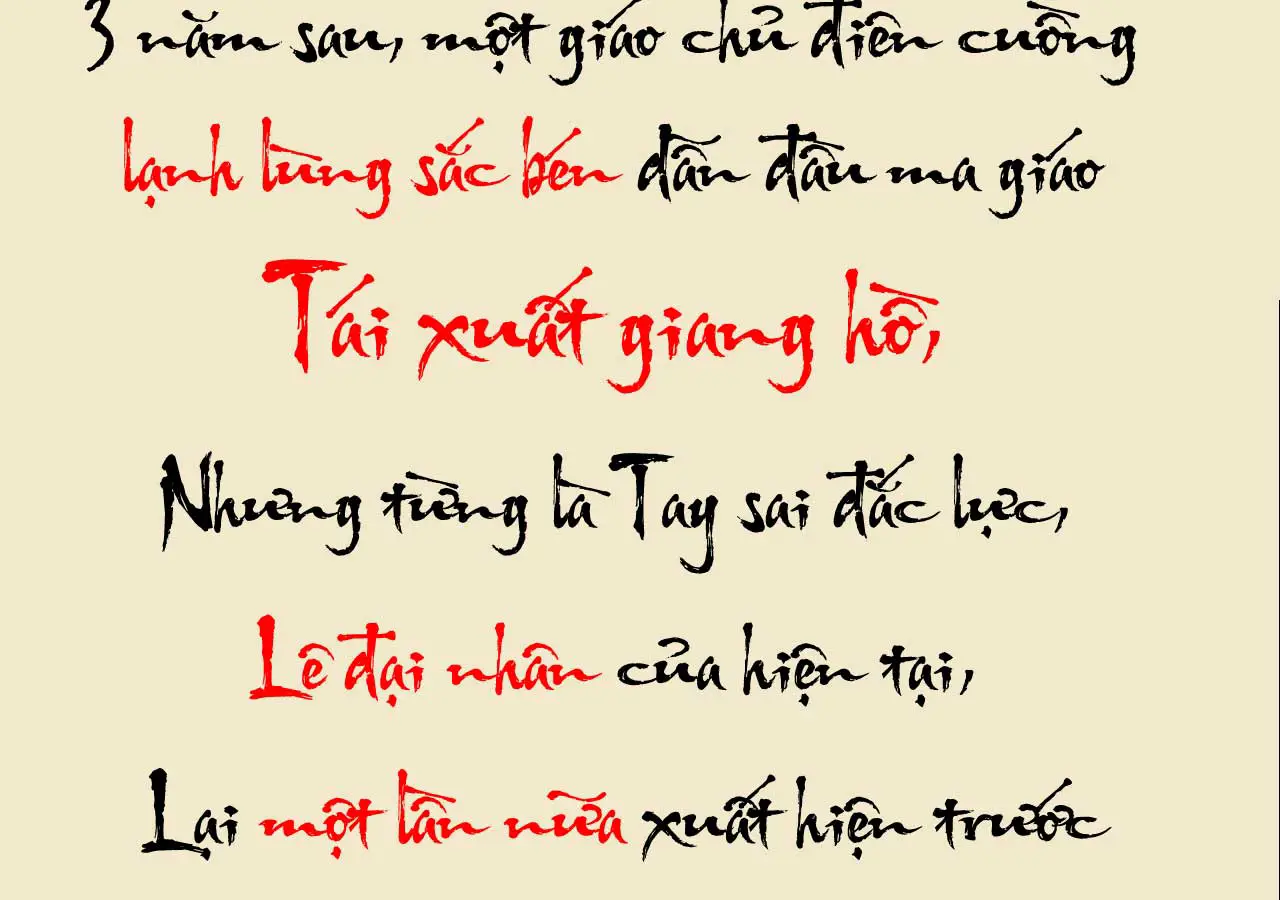 3 năm sau, một giáo chủ điên cuồng
lạnh lùng sắc bén dẫn đầu ma giáo
Tái xuất giang hồ,
Nhưng từng là Tay sai đắc lực,
Lê đại nhân của hiện tại,
Lại một lần nữa xuất hiện trước